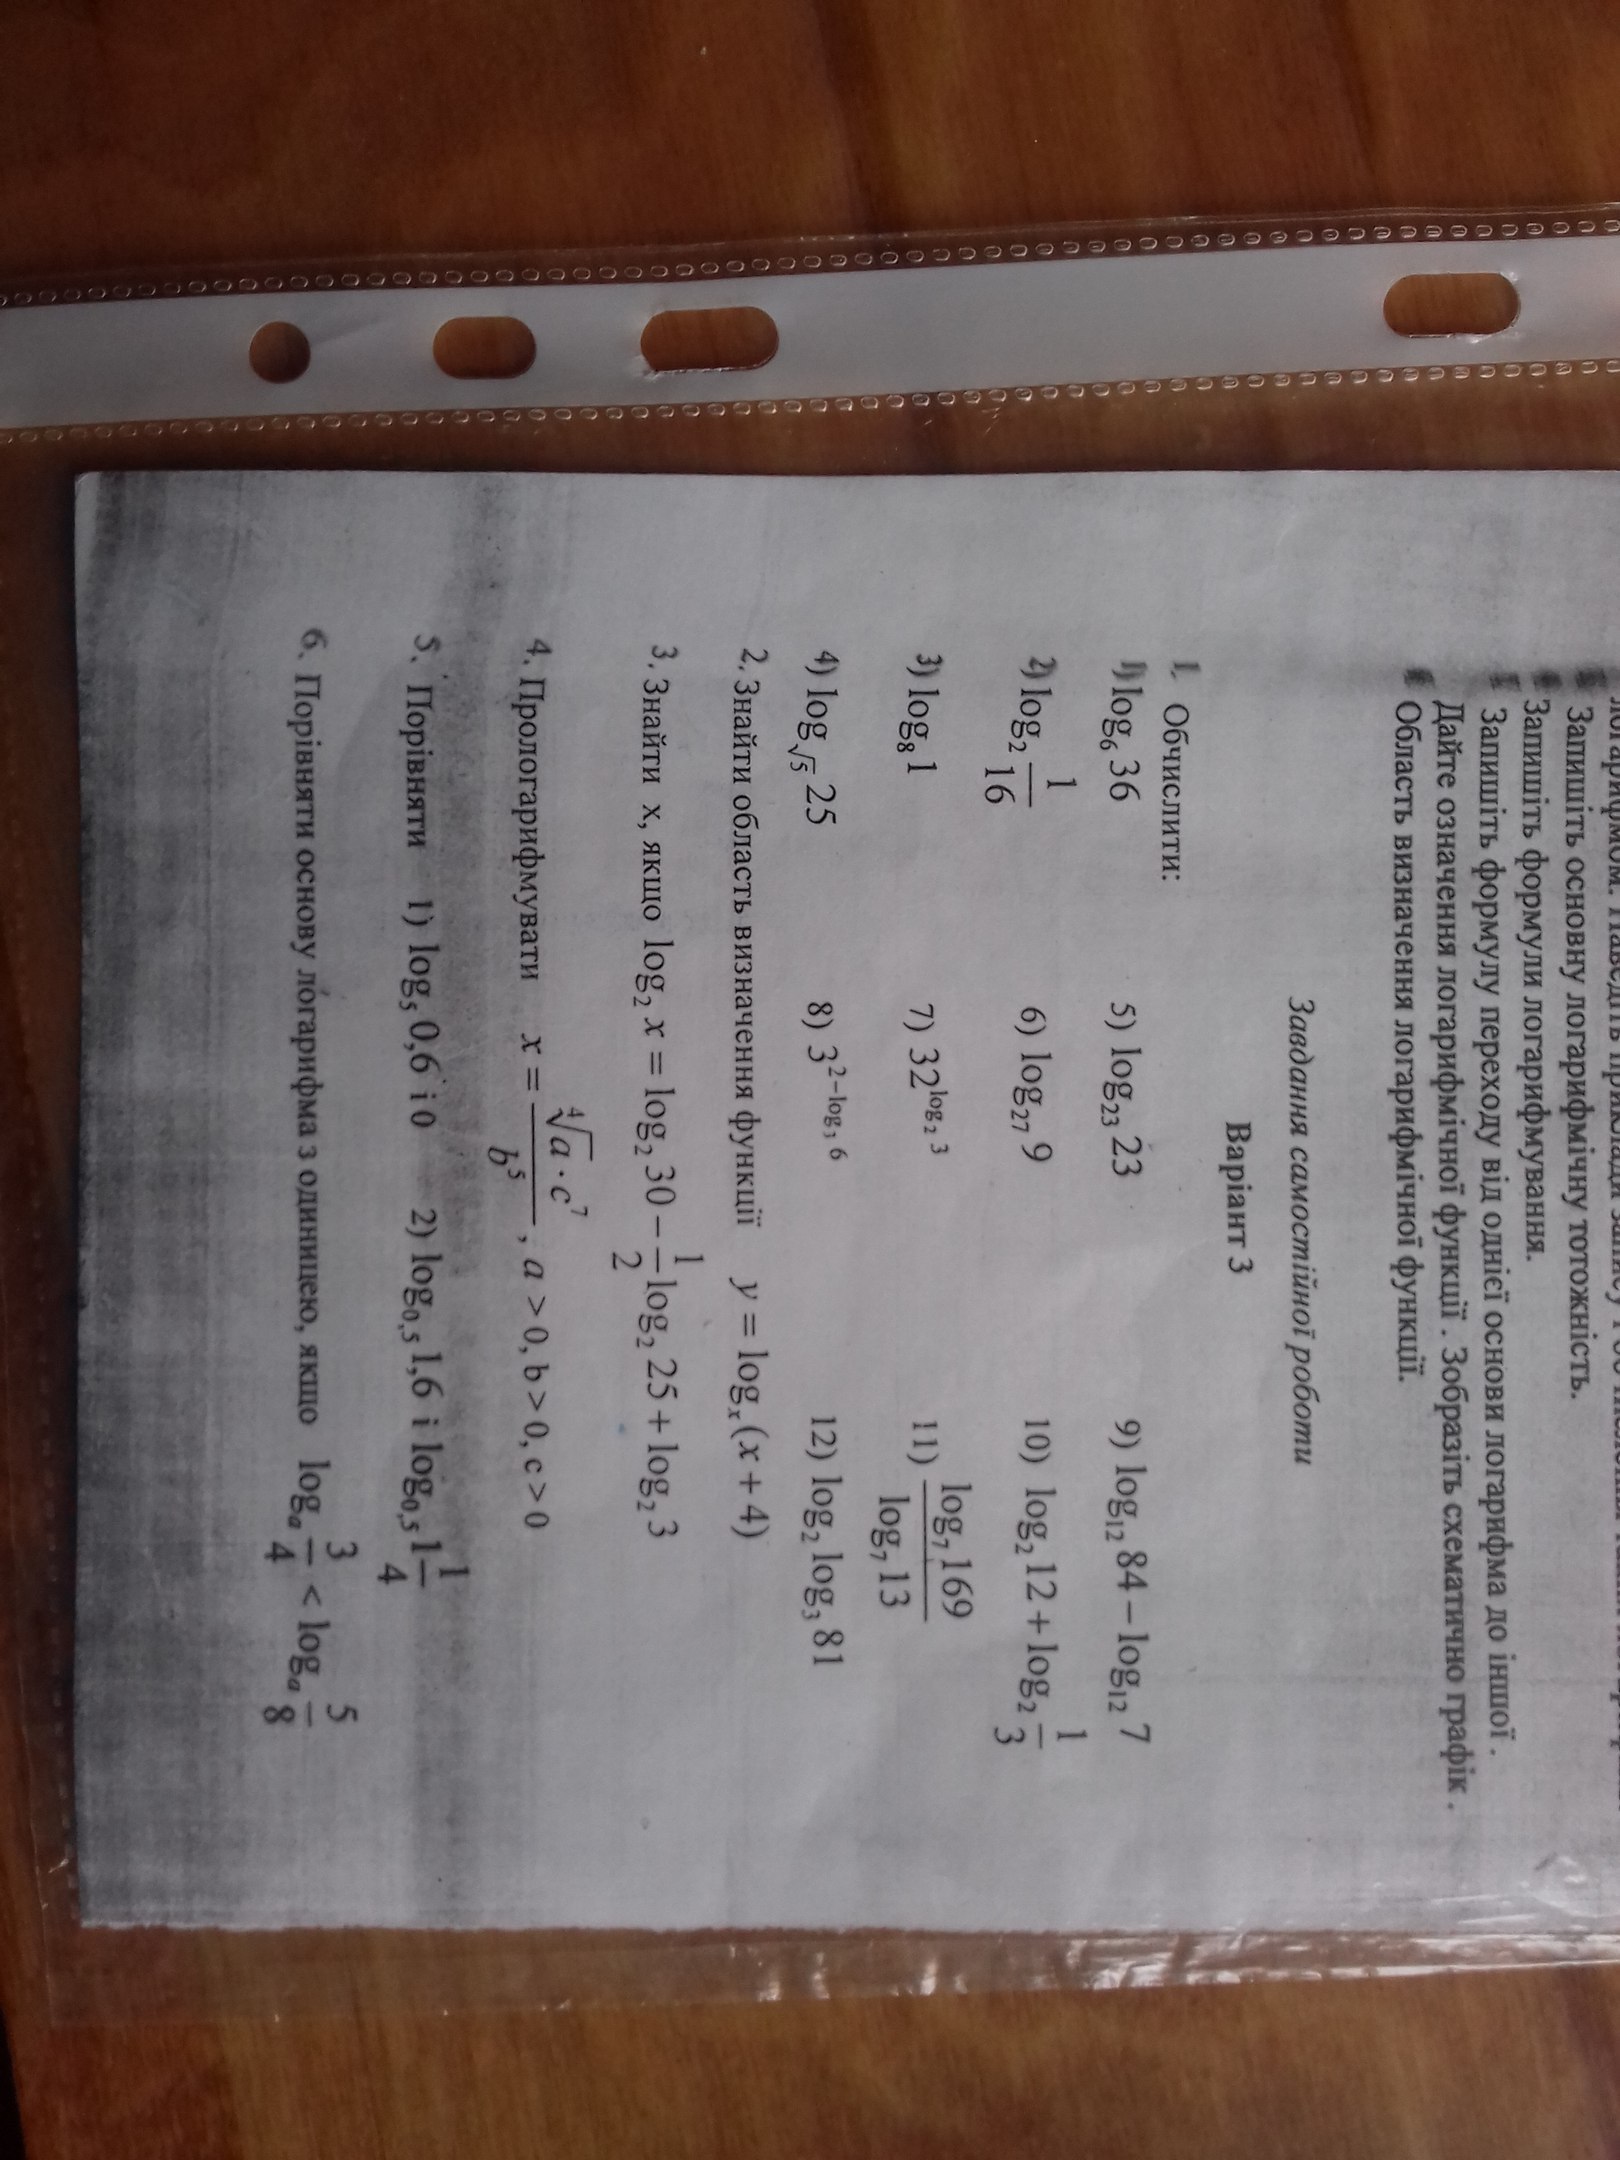 Запишіть основну логарифмічну тотожність.
Запишіть формули логарифмування.
Запишіть формулу переходу від однієї основи логарифма до іншої .
Дайте означення логарифмічної функції . Зобразіть схематично графік .
Область визначення логарифмічної функції.
Завдання самостійної роботи
Варіант 3
1. Обчислити:
1) log₆ 36 5) log₂₃ 23 9) log₁₂ 84 − log₁₂ 7
2) log₂ 1/16 6) log₂₇ 9 10) log₂ 12 + log₂ 1/3
3) log₈ 1 7) 32^(log₂ 3) 11) log₇ 169 / log₇ 13
4) log_√5 25 8) 3^(2−log₃ 6) 12) log₂ log₃ 81
2. Знайти область визначення функції y = logₓ(x + 4)
3. Знайти х, якщо log₂ x = log₂ 30 − 1/2 log₂ 25 + log₂ 3
4. Прологарифмувати x = ⁴√a · c⁷ / b⁵ , a > 0, b > 0, c > 0
5. Порівняти 1) log₅ 0,6 і 0 2) log₀,₅ 1,6 і log₀,₅ 1 1/4
6. Порівняти основу логарифма з одиницею, якщо logₐ 3/4 < logₐ 5/8